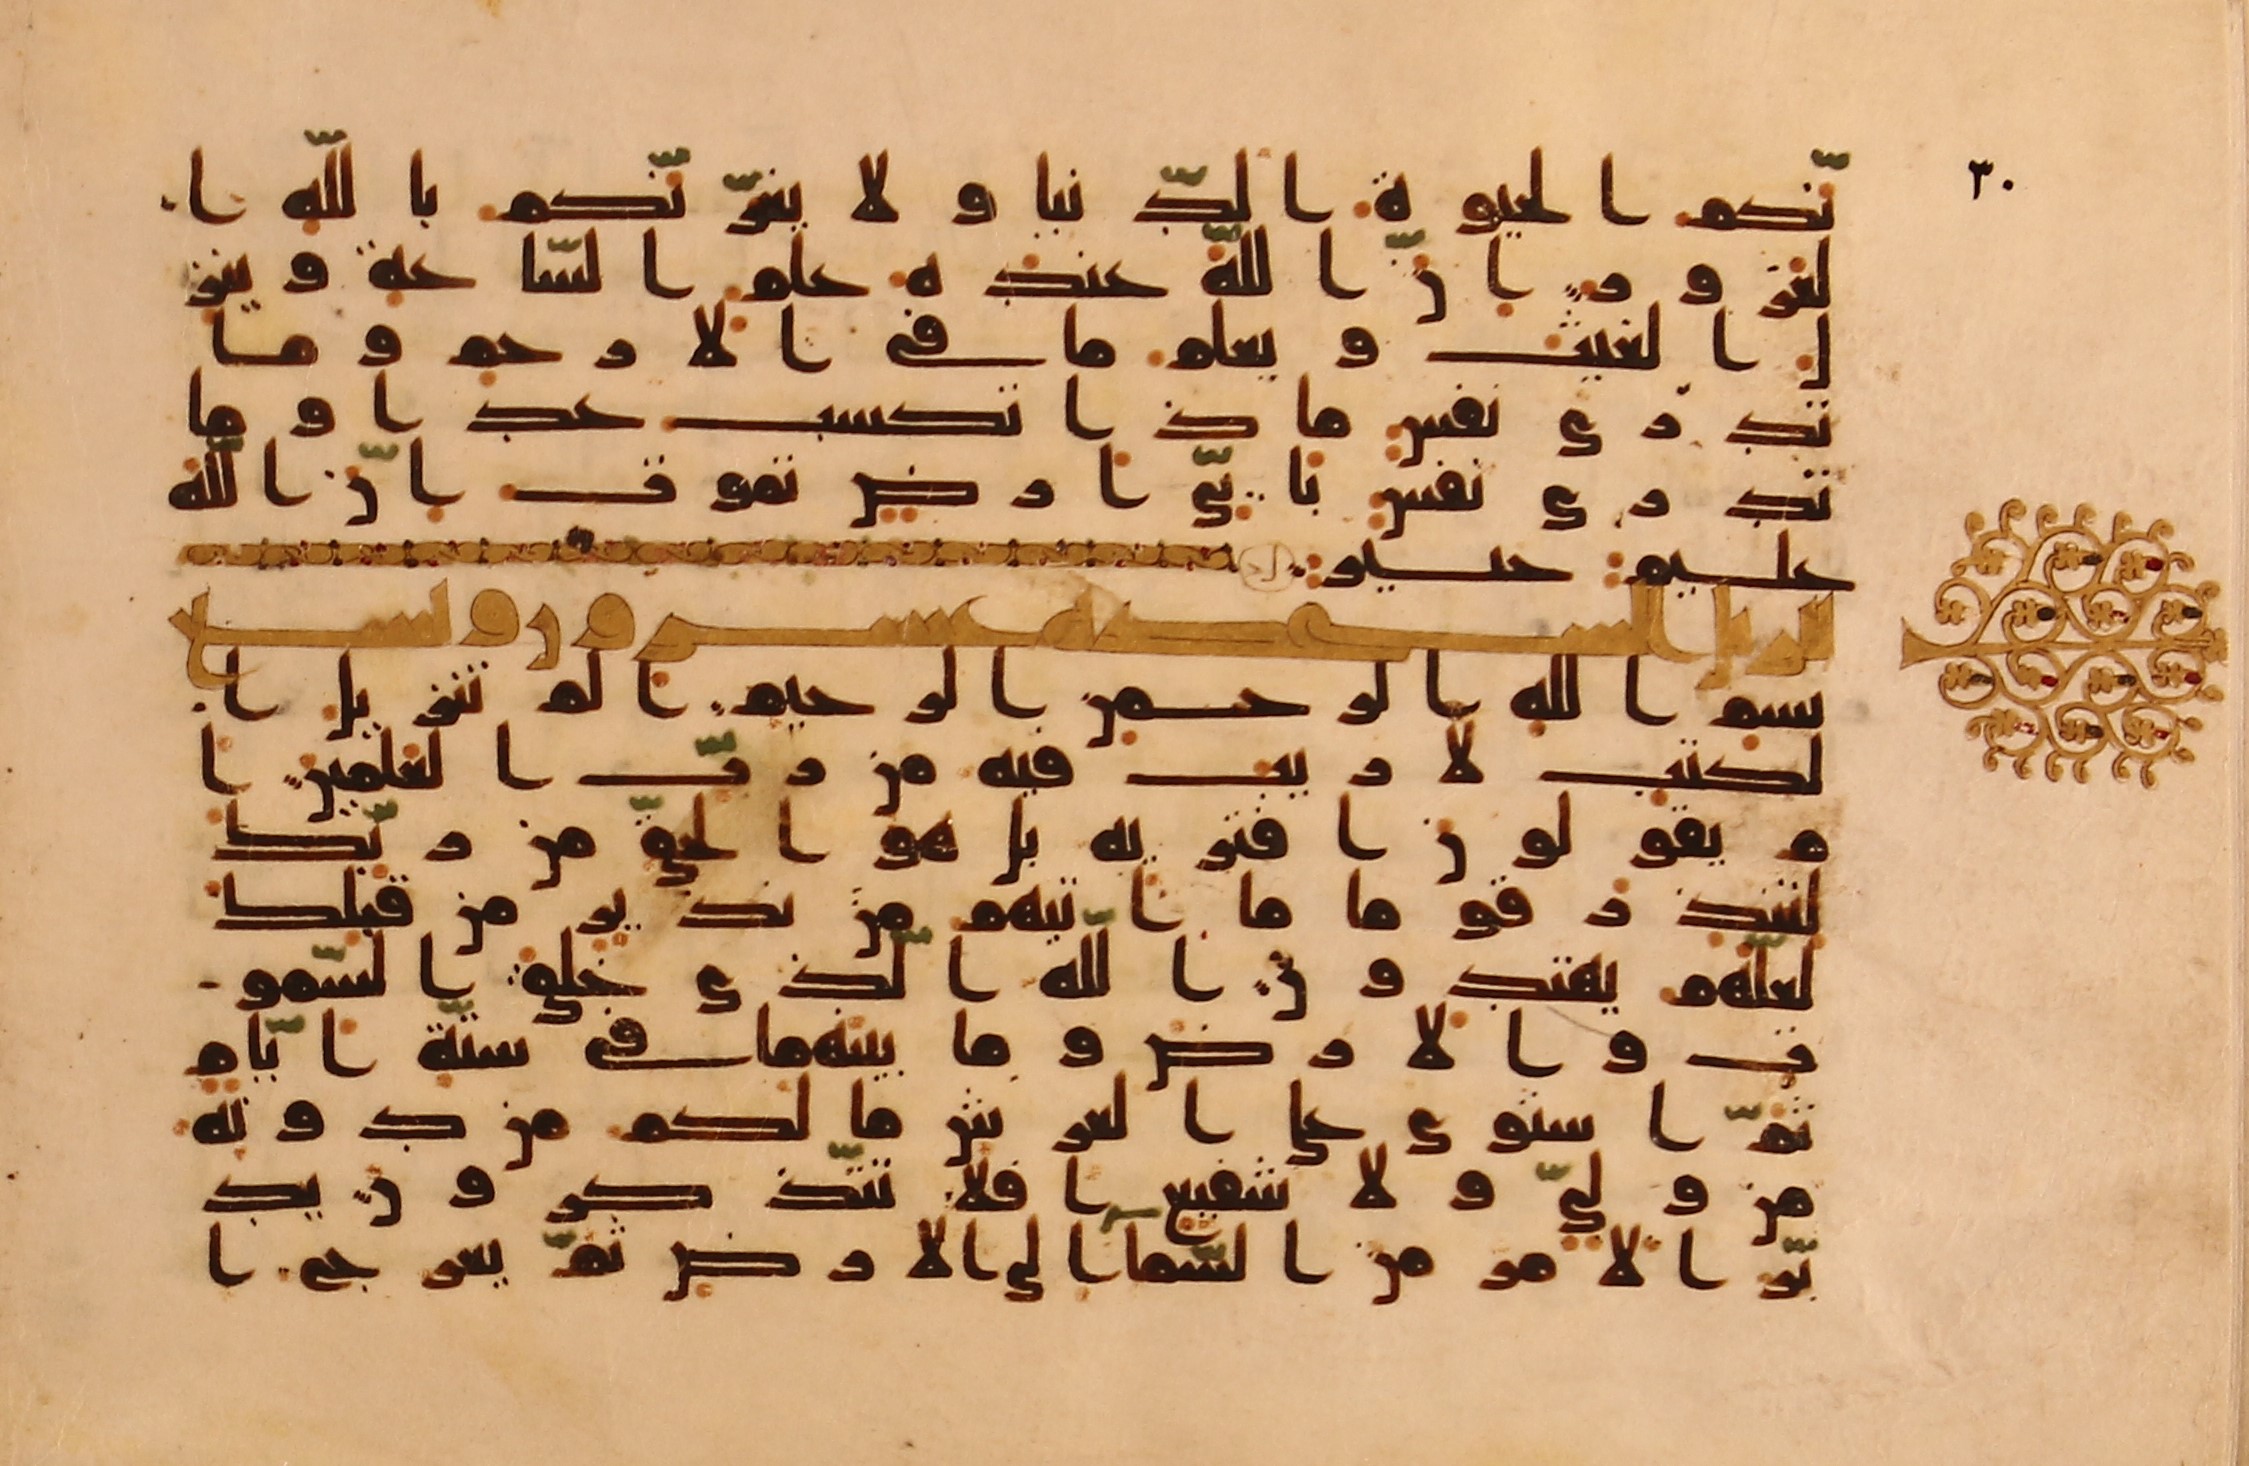 ٣٠
نّكم الحيوة الدّنيا ولا يغرّنّكم باللّه ا
لغرور انّ اللّه عنده علم السّاعة وينز
ل الغيث ويعلم ما في الارحم وما
تدري نفس ماذا تكسب غدا وما
تدري نفس بايّ ارض تموت انّ اللّه
عليم خبير
تنزيل السجده عشرون وتسع
بسم الله الرحمن الرحيم الم تنزيل ا
لكتب لا ريب فيه من ربّ العلمين ا
م يقولون افتريه بل هو الحقّ من ربّك
لتنذر قوما ما اتيهم من نذير من قبلك
لعلّهم يهتدون اللّه الّذي خلق السّمو
ت والارض وما بينهما في ستّة ايّام
ثمّ استوى على العرش ما لكم من دونه
من وليّ ولا شفيع افلا تتذّكرون يد
بّر الامر من السّما الى الارض ثمّ يعرج ا